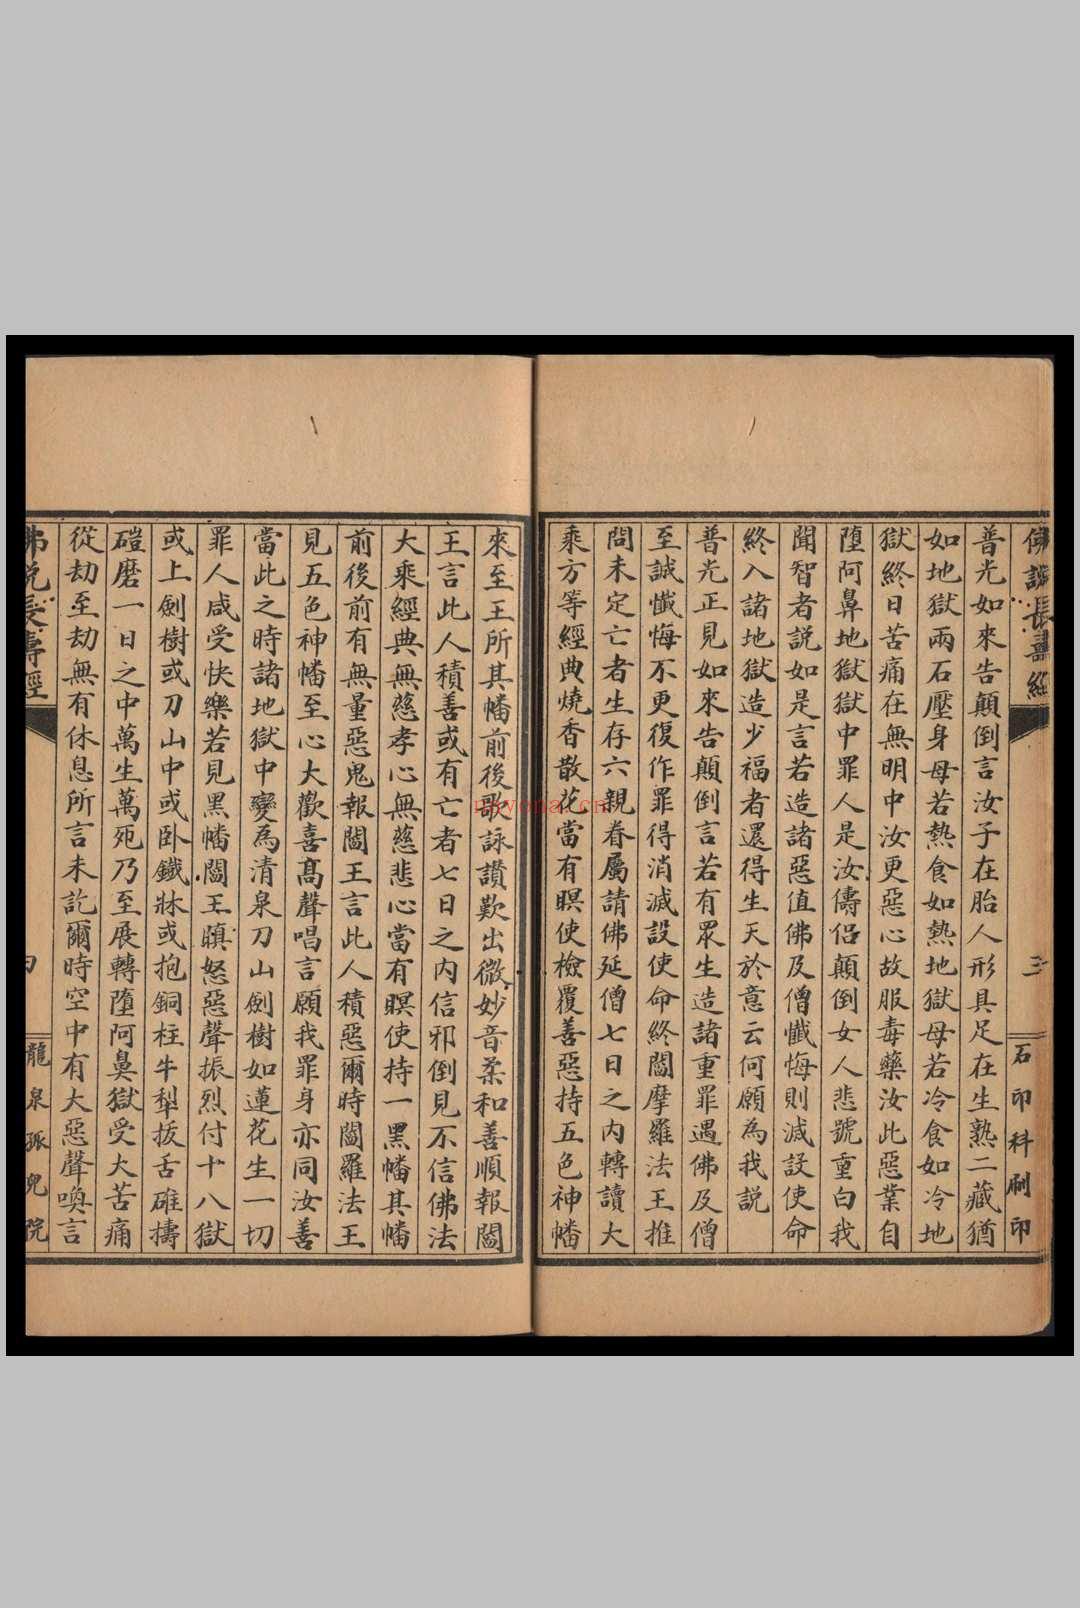 佛說長壽經
三
石印科刷印
普光如來告顛倒言汝子在胎人形具足在生熟二藏猶
如地獄兩石壓身母若熱食如熱地獄母若冷食如冷地
獄終日苦痛在無明中汝更惡心故服毒藥汝此惡業自
墮阿鼻地獄獄中罪人是汝儔侶顛倒女人悲號重白我
聞智者說如是言若造諸惡值佛及僧懺悔則滅設使命
終入諸地獄造少福者還得生天於意云何願為我說
普光正見如來告顛倒言若有眾生造諸重罪遇佛及僧
至誠懺悔不更復作罪得消滅設使命終閻摩羅法王推
問未定亡者生存六親眷屬請佛延僧七日之內轉讀大
乘方等經典燒香散花當有瞑使檢覆善惡持五色神幡
來至王所其幡前後歌詠讚歎出微妙音柔和善順報閻
王言此人積善或有亡者七日之內信邪倒見不信佛法
大乘經典無慈孝心無慈悲心當有瞑使持一黑幡其幡
前後前有無量惡鬼報閻王言此人積惡爾時閻羅法王
見五色神幡至心大歡喜高聲唱言願我罪身亦同汝善
當此之時諸地獄中變為清泉刀山劍樹如蓮花生一切
罪人咸受快樂若見黑幡閻王瞋怒惡聲振烈付十八獄
或上劍樹或刀山中或卧鐵牀或抱銅柱牛犁拔舌碓擣
磑磨一日之中萬生萬死乃至展轉墮阿鼻獄受大苦痛
從劫至劫無有休息所言未訖爾時空中有大惡聲喚言
佛說長壽經
龍泉孤兒院